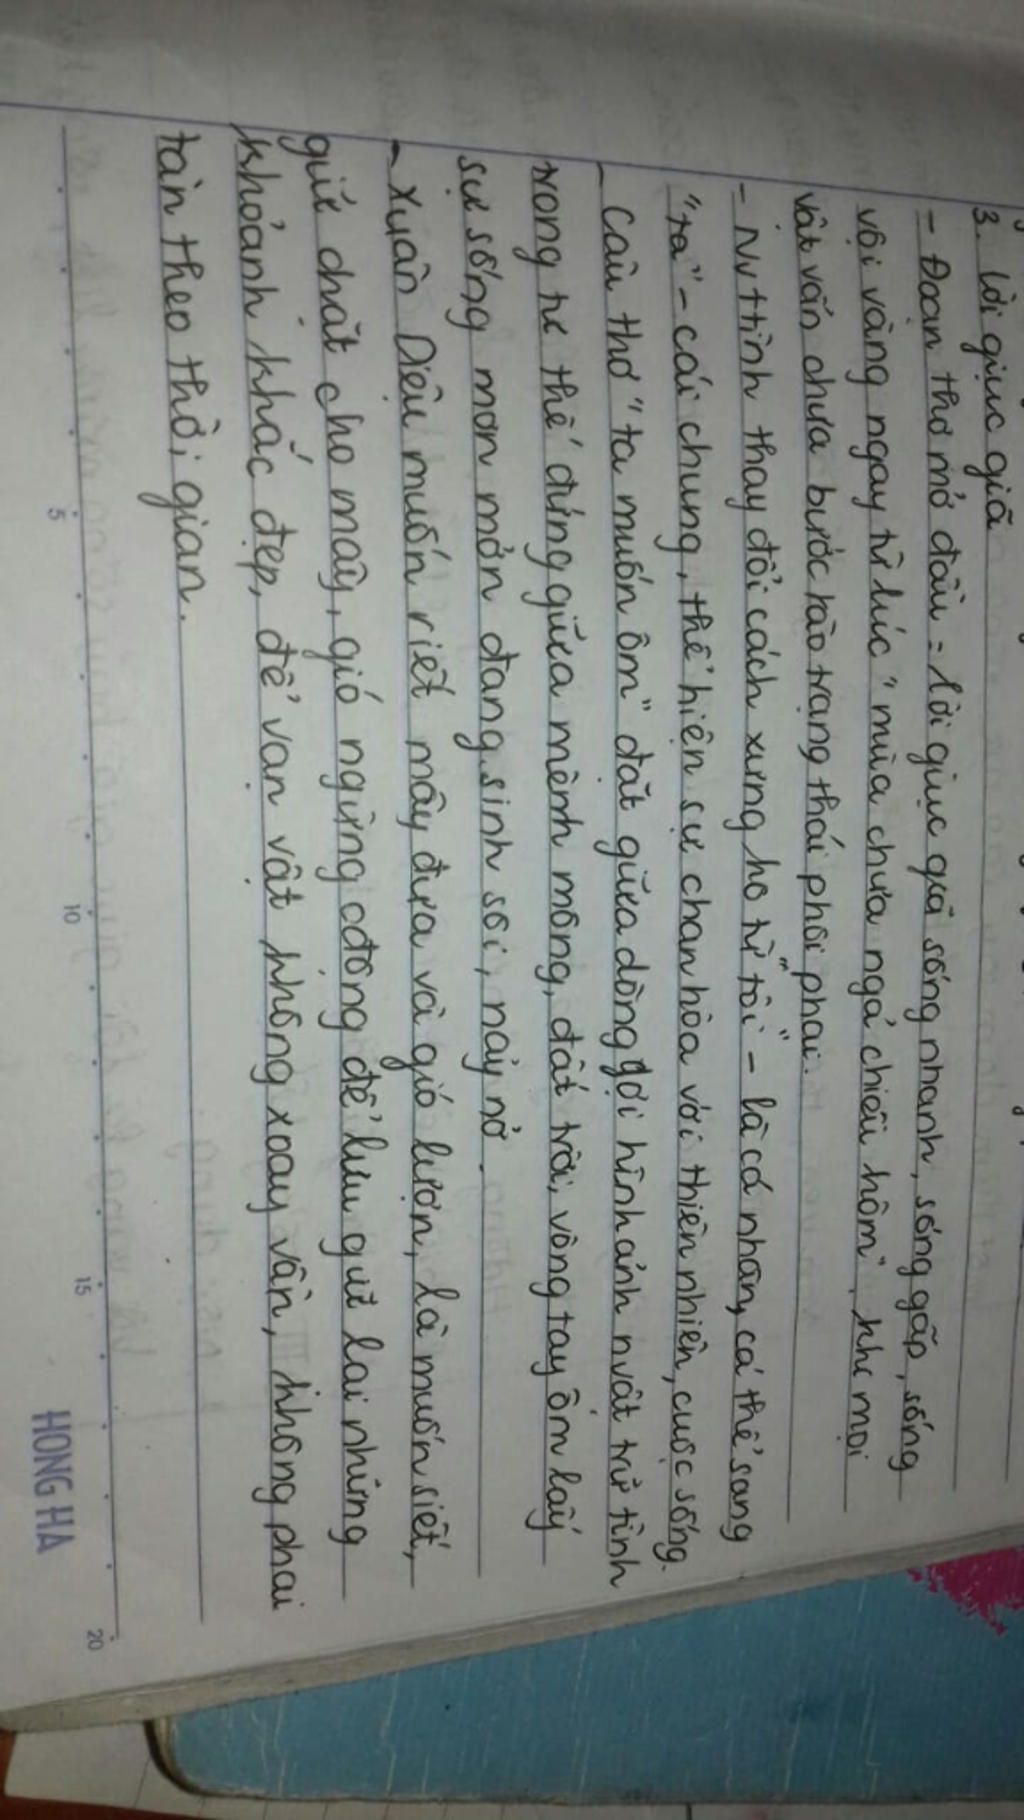 3. Lời giục giã
- Đoạn thơ mở đầu = lời giục giã sống nhanh, sống gấp, sống
vội vàng ngay từ lúc "mùa chưa ngả chiều hôm", khi mọi
vật vẫn chưa bước vào trạng thái phôi phai.
- Nv ttình thay đổi cách xưng hô từ "tôi" - là cá nhân, cá thể sang
"ta" - cái chung, thể hiện sự chan hòa với thiên nhiên, cuộc sống.
- Câu thơ "ta muốn ôm" đặt giữa dòng gợi hình ảnh nvật trữ tình
trong tư thế đứng giữa mênh mông, đất trời, vòng tay ôm lấy
sự sống mơn mởn đang sinh sôi, nảy nở.
- Xuân Diệu muốn riết mây đưa và gió lượn, là muốn siết,
giữ chặt cho mây, gió ngừng cđộng để lưu giữ lại những
khoảnh khắc đẹp, để vạn vật không xoay vần, không phai
tàn theo thời gian.
5 10 15 20
HONG HA